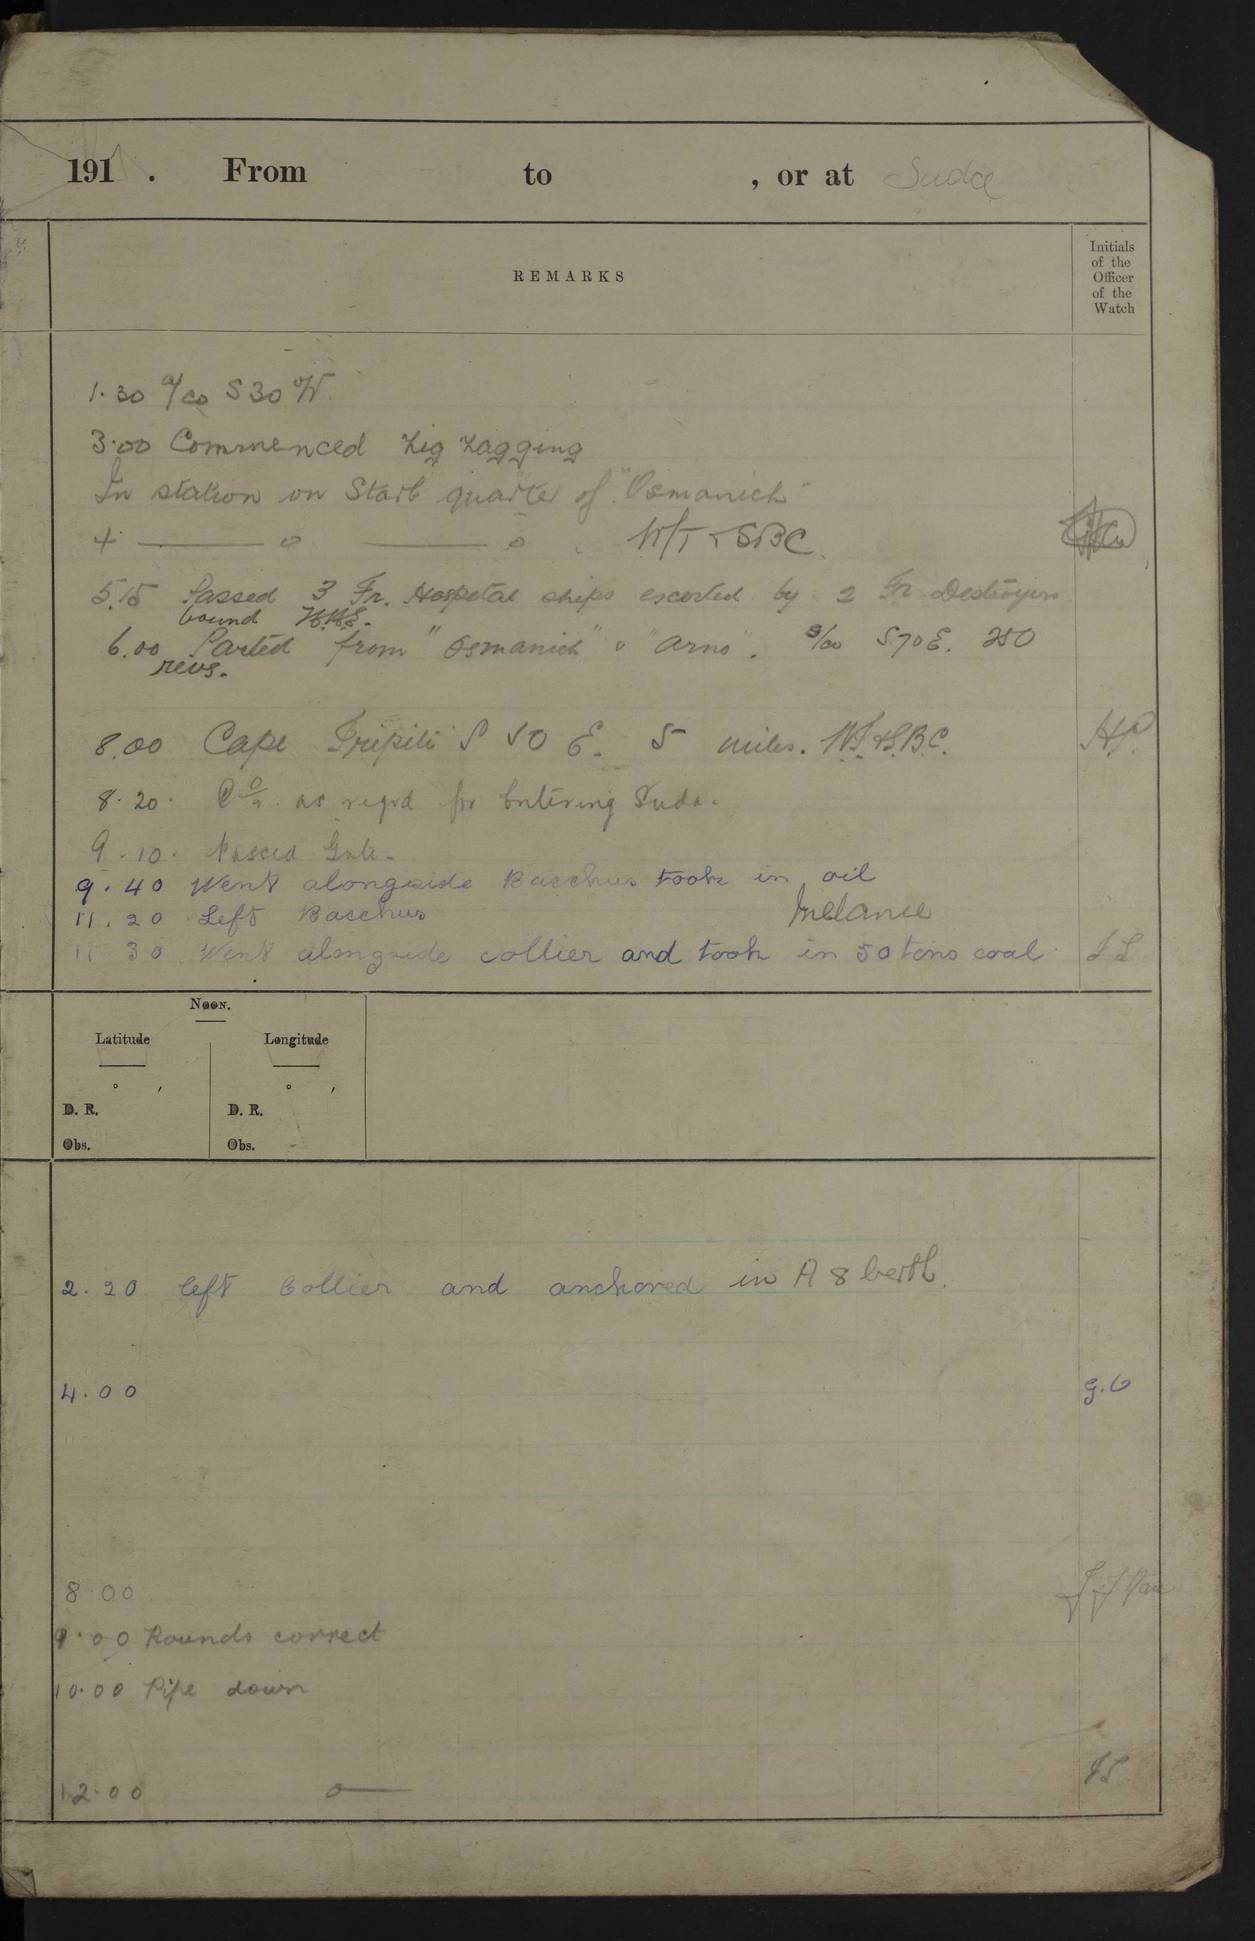 191 . From to , or at Suda
REMARKS
Initials
of the
Officer
of the
Watch
1.30 a/co S 30 W.
3.00 Commenced Zig Zagging
In station on Starb quarter of "Osmanieh"
4 —— o —— o W/T & SBC.
5.15 Passed 3 Fr. Hospital ships escorted by 2 Fr Destroyers
bound
6.00 Parted from "Osmanieh" & "Arno". a/co S 70 E. 250
revs.
8.00 Cape Tripiti S 50 E. 5 miles. WT & S.B.C.
H.P.
8.20. Co as reqrd for Entering Suda.
9.10. Passed Gate.
9.40 Went alongside Bacchus took in oil
11.20 Left Bacchus Melanie
11 30 Went alongside collier and took in 50 tons coal
Noon.
Latitude Longitude
° ′ ° ′
D. R. D. R.
Obs. Obs.
2.20 left Collier and anchored in A 8 berth.
4.00
8.00
9.00 Rounds correct
10.00 Pipe down
12.00 o——